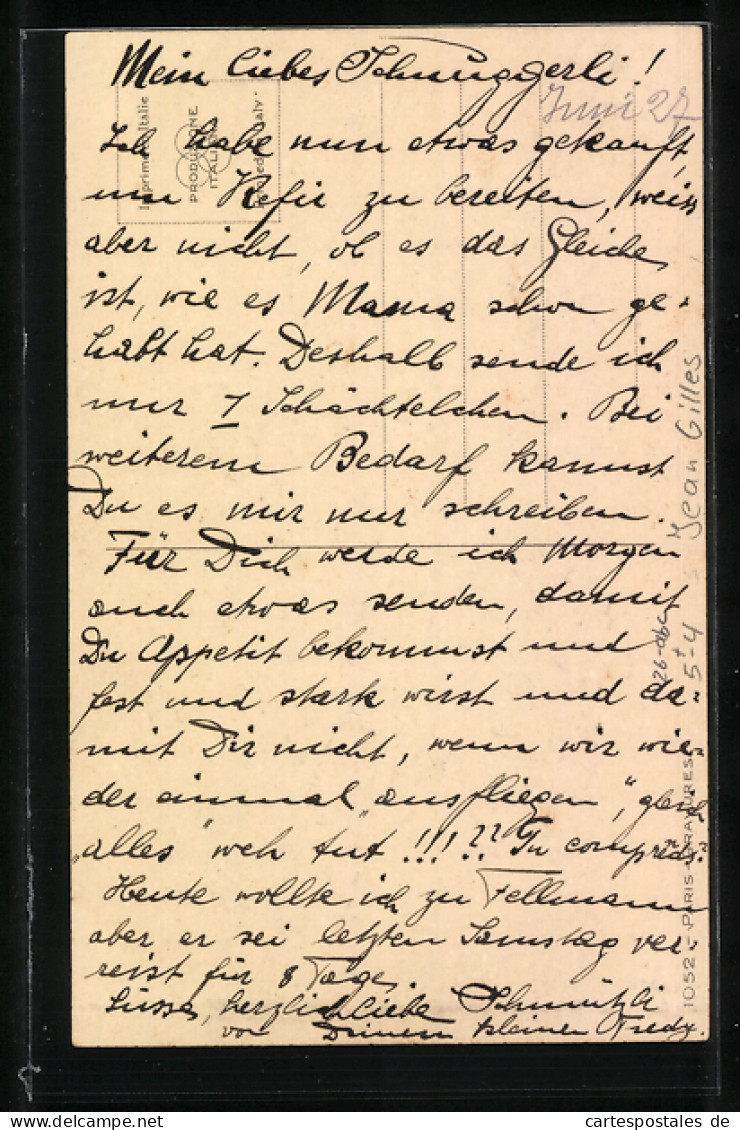 Mein liebes Schnuggerli!
Juni 27
Ich habe nun etwas gekauft,
um Kefir zu bereiten, weiss
aber nicht, ob es das Gleiche
ist, wie es Mama schon ge-
habt hat. Deshalb sende ich
nur 1 Schächtelchen. Bei
weiterem Bedarf kannst
Du es mir nur schreiben.
Für Dich werde ich Morgen
auch etwas senden, damit
Du Appetit bekommst und
fest und stark wirst und da-
mit Dir nicht, wenn wir wie-
der einmal „ausfliegen", gleich
„alles" weh tut !!!?? Tu comprends?
Heute wollte ich zu Fellmann
aber er sei letzten Samstag ver-
reist für 8 Tage.
Süsse, herzlichliebe Schmützli
von Deinem kleinen Fredy.
Imprimé en Italie
PRODUZIONE
ITALIANA
Jean Gilles
5-4
11052 - PARIS GRAVURES
cartespostales de